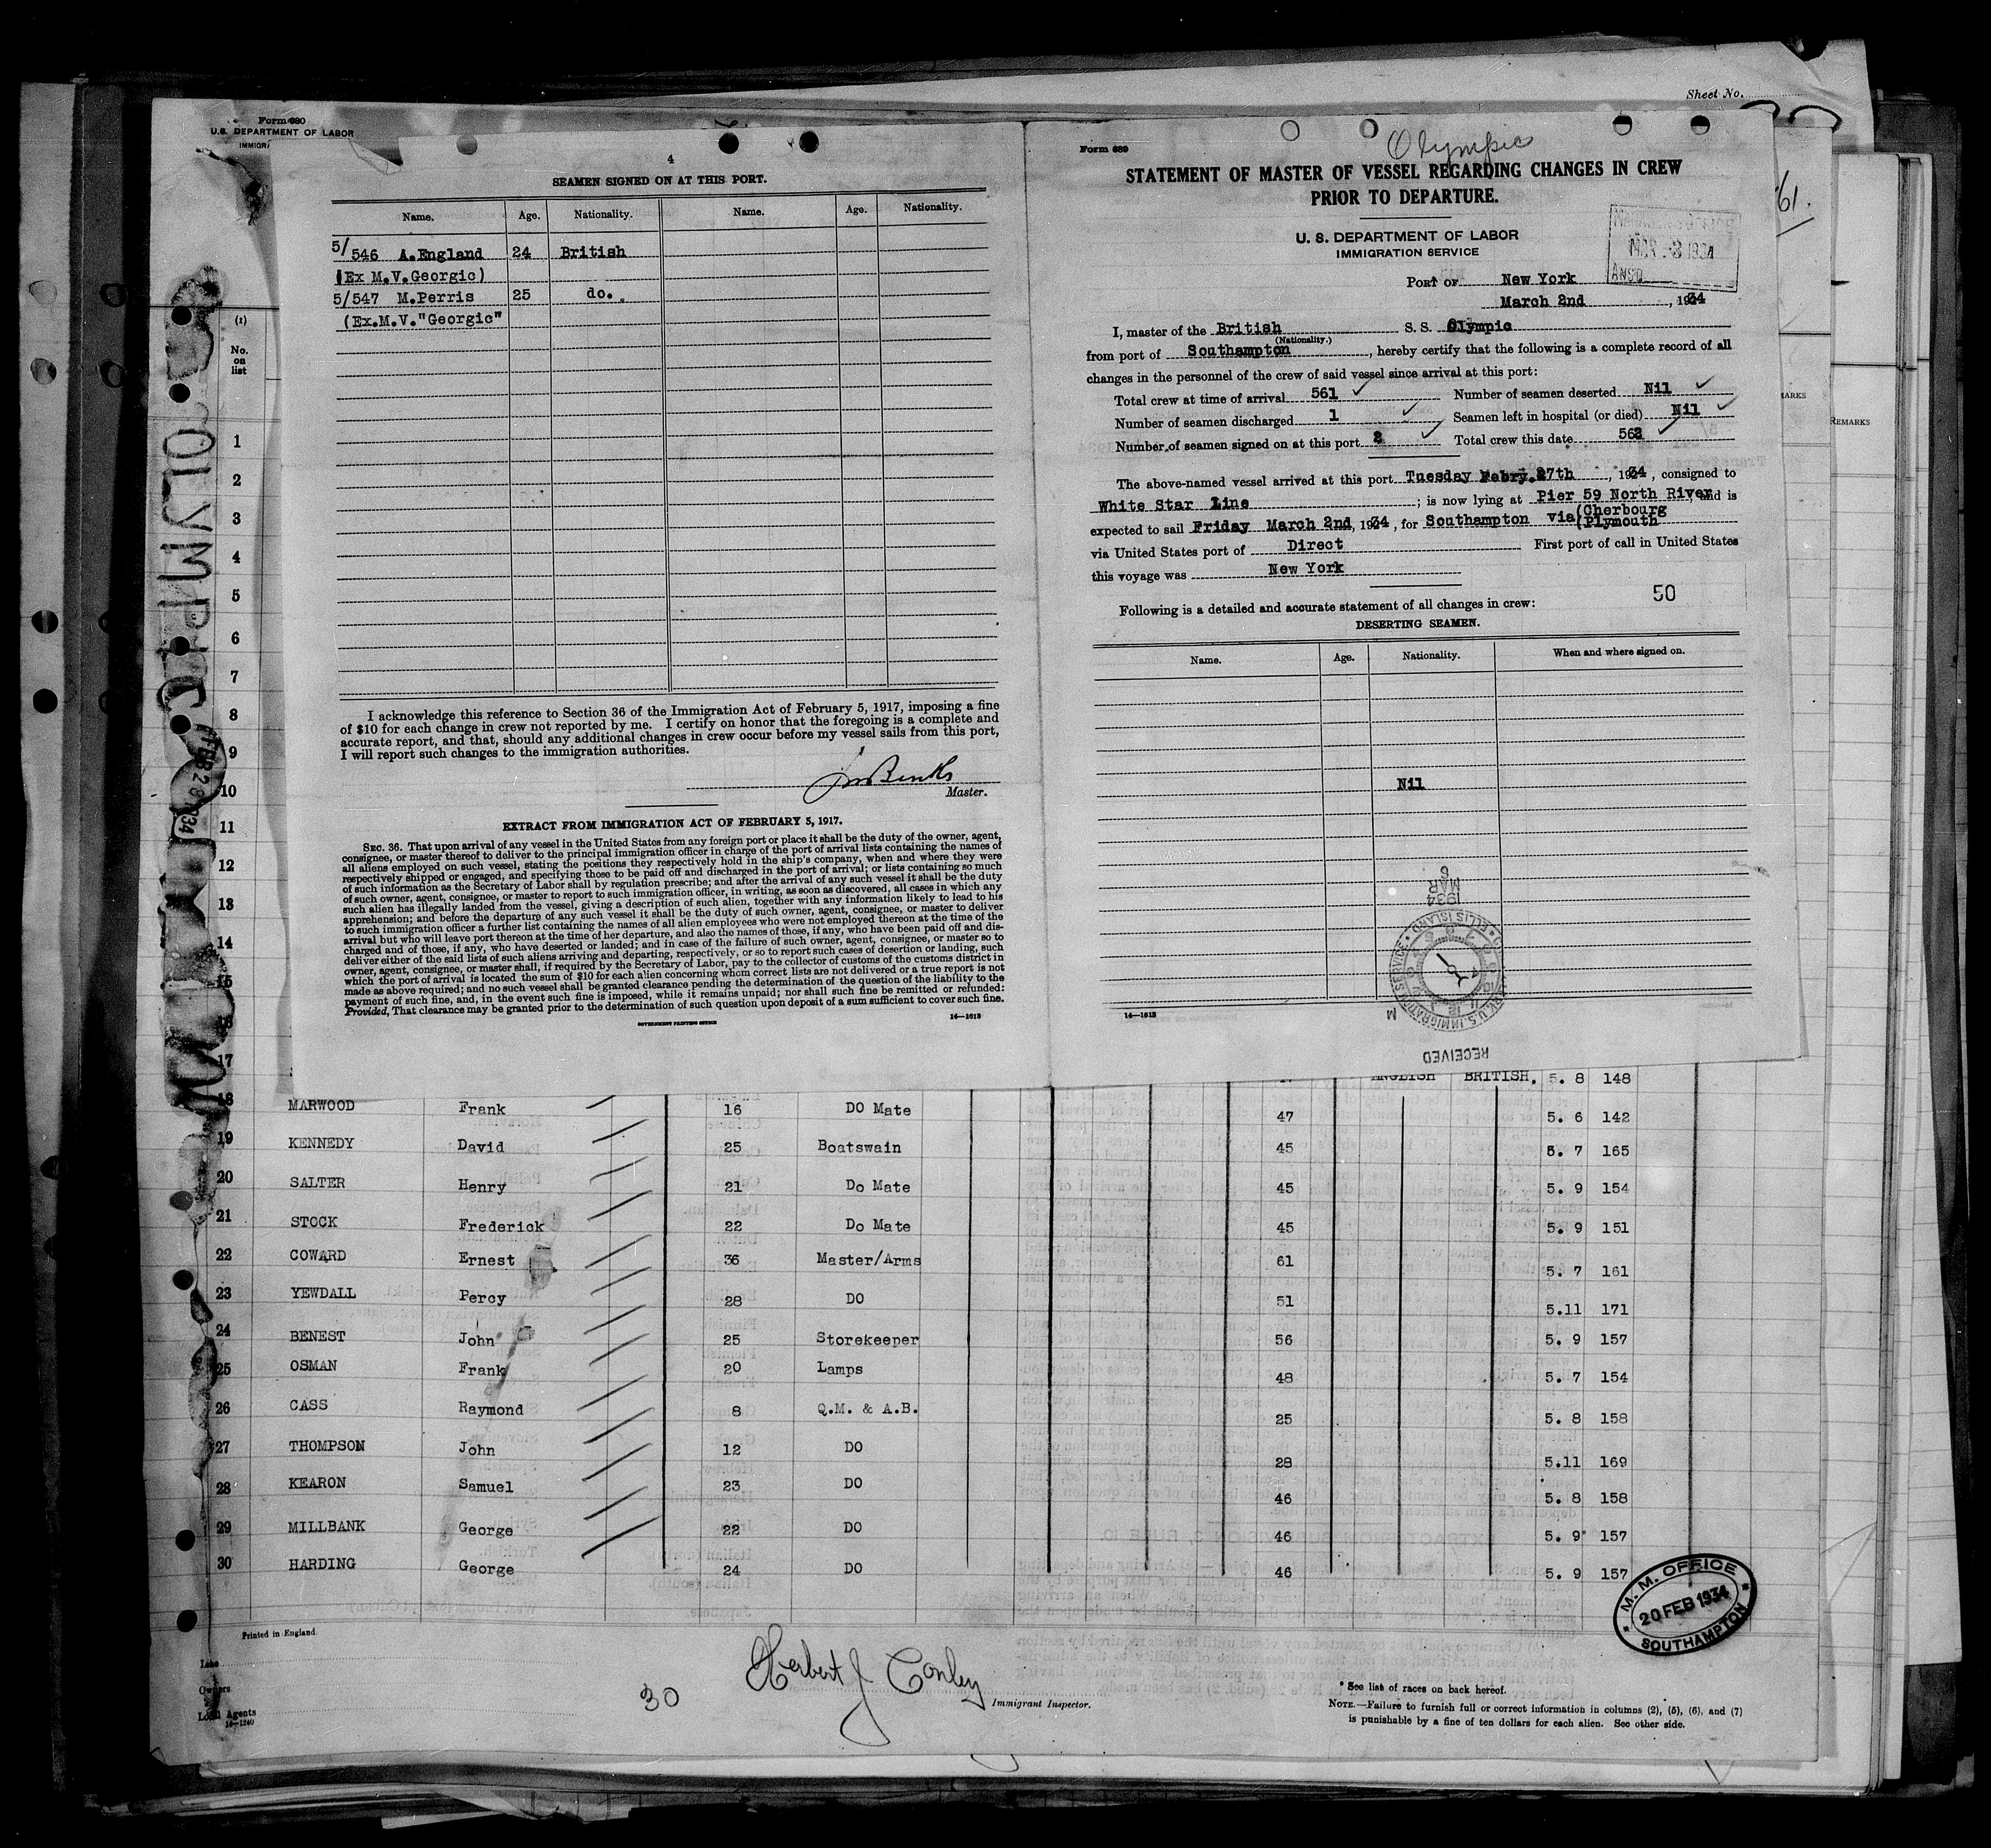 Sheet No.
Form 680
U.S. DEPARTMENT OF LABOR
IMMIGRA
61.
REMARKS
4
SEAMEN SIGNED ON AT THIS PORT.
Name. Age. Nationality. Name. Age. Nationality.
5/546 A.England 24 British
(Ex M.V.Georgic)
5/547 M.Perris 25 do.
(Ex.M.V."Georgic"
I acknowledge this reference to Section 36 of the Immigration Act of February 5, 1917, imposing a fine
of $10 for each change in crew not reported by me. I certify on honor that the foregoing is a complete and
accurate report, and that, should any additional changes in crew occur before my vessel sails from this port,
I will report such changes to the immigration authorities.
Master.
EXTRACT FROM IMMIGRATION ACT OF FEBRUARY 5, 1917.
SEC. 36. That upon arrival of any vessel in the United States from any foreign port or place it shall be the duty of the owner, agent,
consignee, or master thereof to deliver to the principal immigration officer in charge of the port of arrival lists containing the names of
all aliens employed on such vessel, stating the positions they respectively hold in the ship's company, when and where they were
respectively shipped or engaged, and specifying those to be paid off and discharged in the port of arrival; or lists containing so much
of such information as the Secretary of Labor shall by regulation prescribe; and after the arrival of any such vessel it shall be the duty
of such owner, agent, consignee, or master to report to such immigration officer, in writing, as soon as discovered, all cases in which any
such alien has illegally landed from the vessel, giving a description of such alien, together with any information likely to lead to his
apprehension; and before the departure of any such vessel it shall be the duty of such owner, agent, consignee, or master to deliver
to such immigration officer a further list containing the names of all alien employees who were not employed thereon at the time of the
arrival but who will leave port thereon at the time of her departure, and also the names of those, if any, who have been paid off and dis-
charged and of those, if any, who have deserted or landed; and in case of the failure of such owner, agent, consignee, or master so to
deliver either of the said lists of such aliens arriving and departing, respectively, or so to report such cases of desertion or landing, such
owner, agent, consignee, or master shall, if required by the Secretary of Labor, pay to the collector of customs of the customs district in
which the port of arrival is located the sum of $10 for each alien concerning whom correct lists are not delivered or a true report is not
made as above required; and no such vessel shall be granted clearance pending the determination of the question of the liability to the
payment of such fine, and, in the event such fine is imposed, while it remains unpaid; nor shall such fine be remitted or refunded:
Provided, That clearance may be granted prior to the determination of such question upon deposit of a sum sufficient to cover such fine.
GOVERNMENT PRINTING OFFICE 14—1613
Form 689
Olympic
STATEMENT OF MASTER OF VESSEL REGARDING CHANGES IN CREW
PRIOR TO DEPARTURE.
U. S. DEPARTMENT OF LABOR
IMMIGRATION SERVICE
MAR -3 1934
ANSD.
PORT OF New York
March 2nd , 1934
I, master of the British S. S. Olympic
(Nationality.)
from port of Southampton , hereby certify that the following is a complete record of all
changes in the personnel of the crew of said vessel since arrival at this port:
Total crew at time of arrival 561 Number of seamen deserted Nil
Number of seamen discharged 1 Seamen left in hospital (or died) Nil
Number of seamen signed on at this port 2 Total crew this date 562
The above-named vessel arrived at this port Tuesday Febry.27th , 1934 , consigned to
White Star Line ; is now lying at Pier 59 North River, and is
expected to sail Friday March 2nd, 1934 , for Southampton via (Cherbourg
(Plymouth
via United States port of Direct First port of call in United States
this voyage was New York
50
Following is a detailed and accurate statement of all changes in crew:
DESERTING SEAMEN.
Name. Age. Nationality. When and where signed on.
Nil
1934
MAR
6
U.S. IMMIGRATION SERVICE
ELLIS ISLAND
M
RECEIVED
14—1613
OLYMPIC
FEB 28 1934
(1)
No.
on
list
1
2
3
4
5
6
7
8
9
10
11
12
13
14
15
16
17 ENGLISH BRITISH. 5. 8 148
18 MARWOOD Frank 16 DO Mate 47 5. 6 142
19 KENNEDY David 25 Boatswain 45 5. 7 165
20 SALTER Henry 21 Do Mate 45 5. 9 154
21 STOCK Frederick 22 Do Mate 45 5. 9 151
22 COWARD Ernest 36 Master/Arms 61 5. 7 161
23 YEWDALL Percy 28 DO 51 5.11 171
24 BENEST John 25 Storekeeper 56 5. 9 157
25 OSMAN Frank 20 Lamps 48 5. 7 154
26 CASS Raymond 8 Q.M. & A.B. 25 5. 8 158
27 THOMPSON John 12 DO 28 5.11 169
28 KEARON Samuel 23 DO 46 5. 8 158
29 MILLBANK George 22 DO 46 5. 9 157
30 HARDING George 24 DO 46 5. 9 157
M. M. OFFICE
20 FEB 1934
SOUTHAMPTON
Printed in England
Line
Owners
Local Agents
14—1240
30
Herbert J Conley
Immigrant Inspector.
* See list of races on back hereof.
NOTE.—Failure to furnish full or correct information in columns (2), (5), (6), and (7)
is punishable by a fine of ten dollars for each alien. See other side.